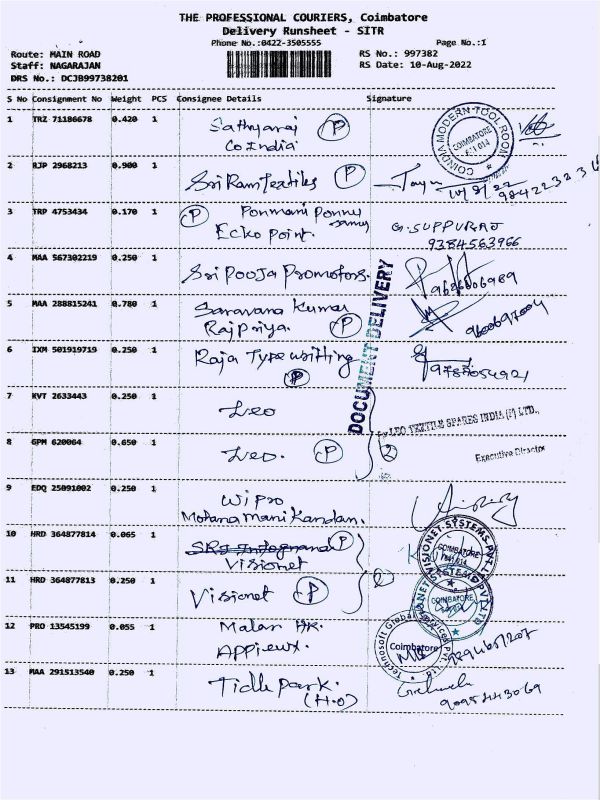 THE PROFESSIONAL COURIERS, Coimbatore
Delivery Runsheet - SITR
Phone No.:0422-3505555 Page No.:1
Route: MAIN ROAD RS No.: 997382
Staff: NAGARAJAN RS Date: 10-Aug-2022
DRS No.: DCJB99738201
S No Consignment No Weight PCS Consignee Details Signature
1 TRZ 71186678 0.420 1 Sathyaraj P
CoIndia
COINDIA MODERN TOOL ROOM
COIMBATORE
641 014
2 RJP 2968213 0.900 1 Sri Ram Textiles P
10/8/22
3 TRP 4753434 0.170 1 P Ponmani Ponnu
Ecko Point. G. SUPPURAJ
9384563966
4 MAA 567302219 0.250 1 Sri Pooja Promotors.
9626006989
5 MAA 288815241 0.780 1 Saravana Kumar
Rajpriya. P 9600697004
6 IXM 501919719 0.250 1 Raja Typewritting
P
DOCUMENT DELIVERY
7 KVT 2633443 0.250 1 Leo
For LEO TEXTILE SPARES INDIA (P) LTD.,
8 GPM 620064 0.650 1 Leo. P 2
Executive Director
9 EDQ 25091002 0.250 1 Wipro
Mohana Mani Kandan.
10 HRD 364877814 0.065 1 P
Visionet
VISIONET SYSTEMS PVT LTD
COIMBATORE
641 014
11 HRD 364877813 0.250 1 Visionet P 2
COIMBATORE
12 PRO 13545199 0.055 1 Malar HR.
Appieux.
Technosoft Global Services Pvt. Ltd.
Coimbatore
13 MAA 291513540 0.250 1 Tidle Park.
(H.O) 9095443069